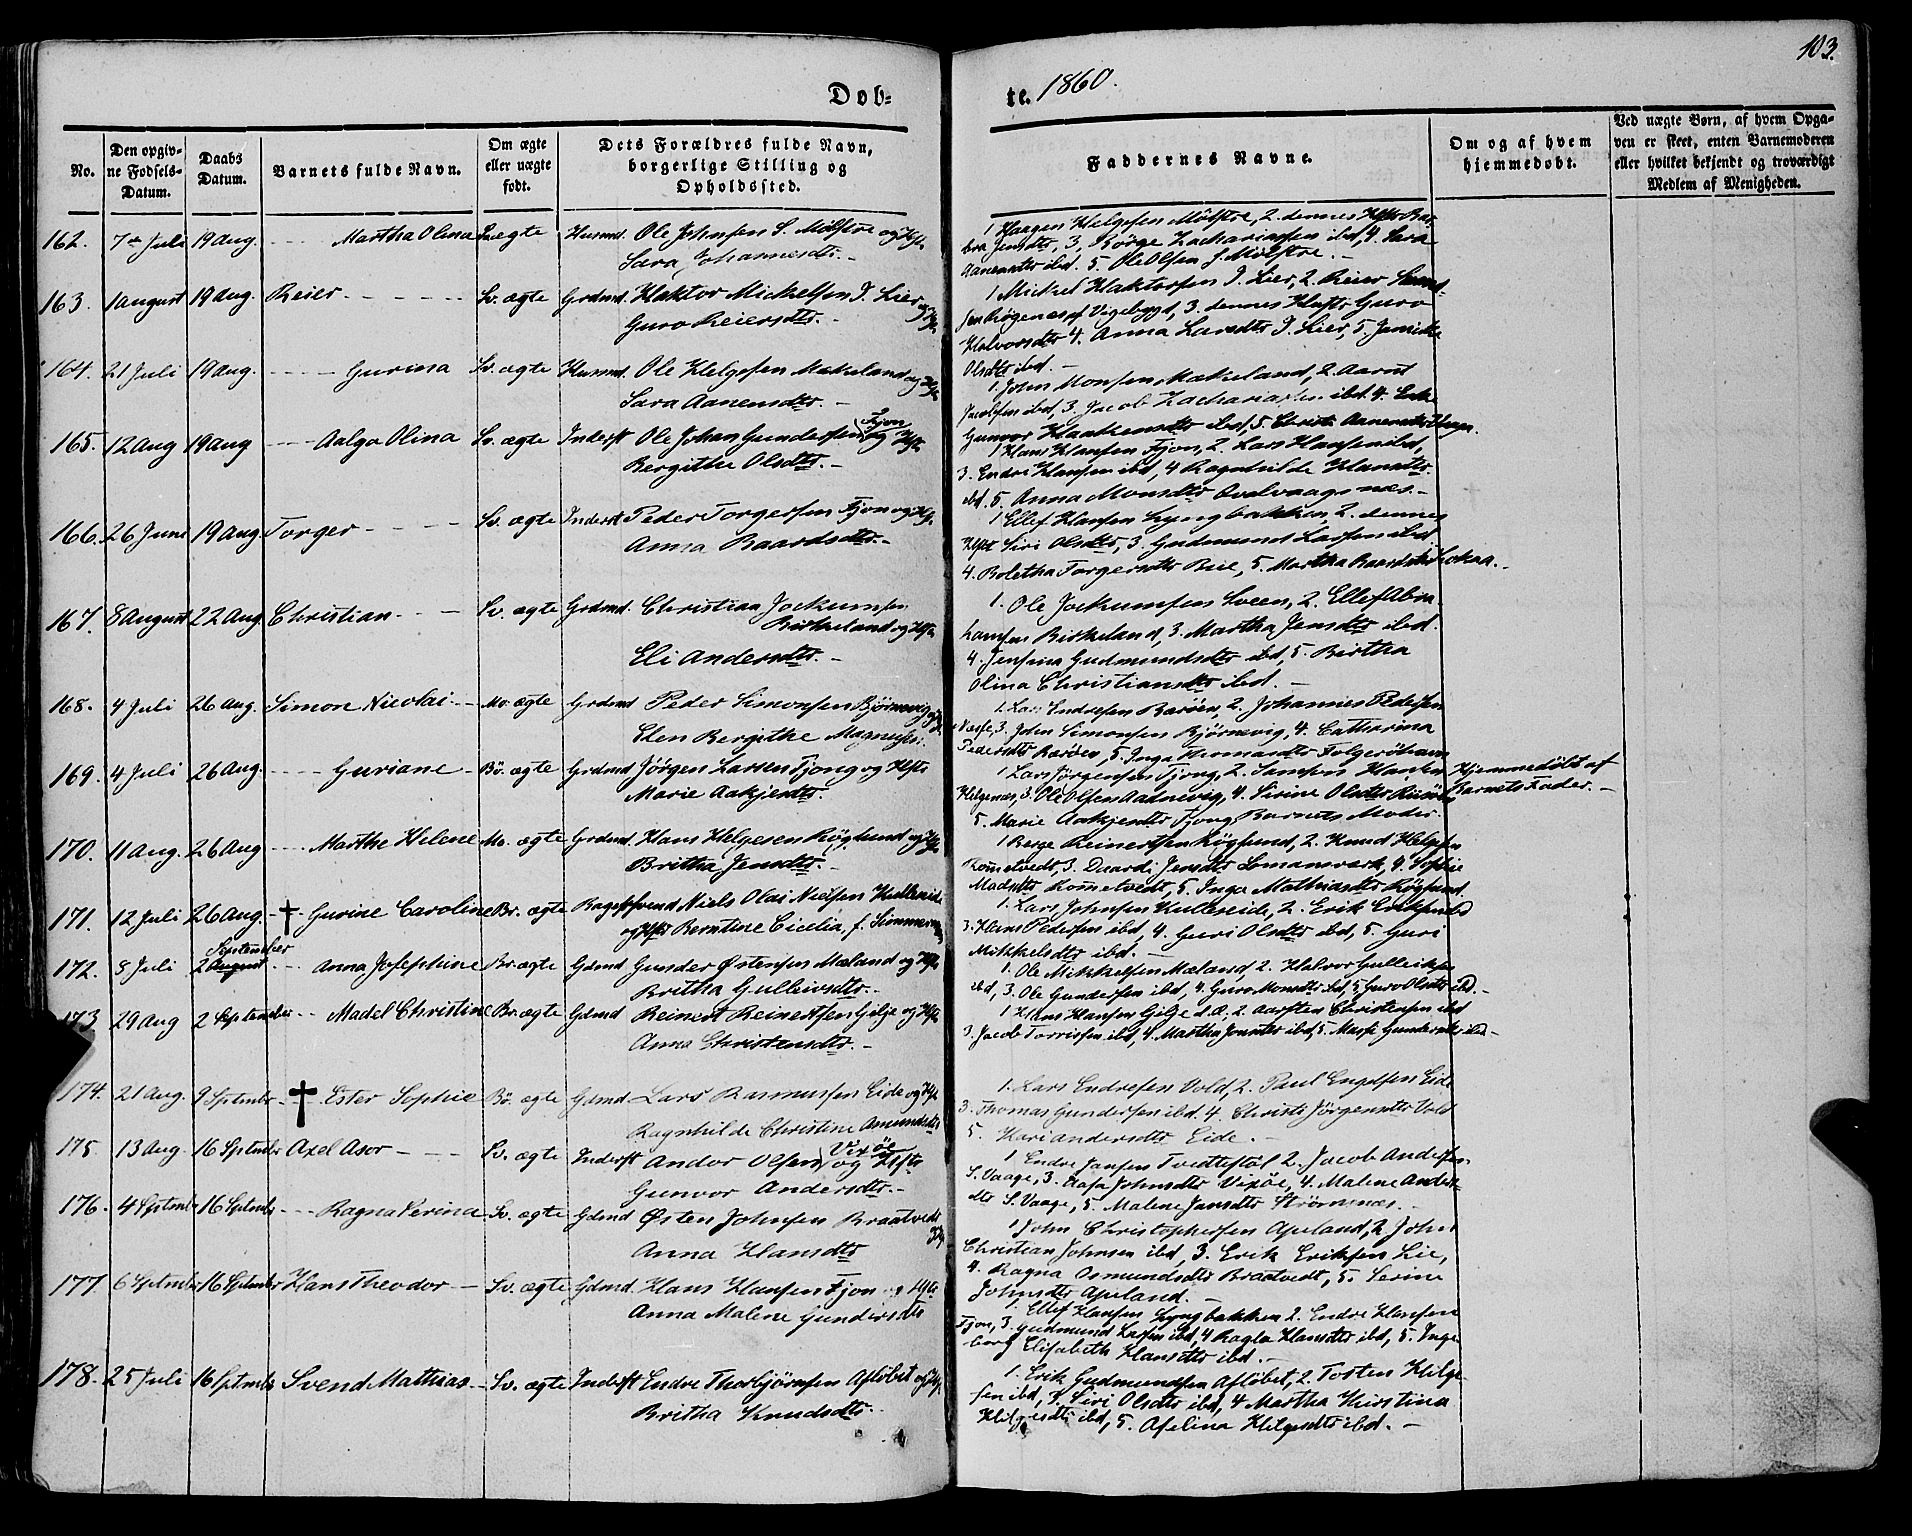 103.
Døb=
te. 1860.
No.
Den opgiv-
ne Fødsels-
Datum.
Daabs
Datum.
Barnets fulde Navn.
Om ægte
eller uægte
født.
Dets Forældres fulde Navn,
borgerlige Stilling og
Opholdssted.
Faddernes Navne.
Om og af hvem
hjemmedøbt.
Ved uægte Børn, af hvem Opga-
ven er skeet, enten Barnemoderen
eller hvilket bekjendt og troværdigt
Medlem af Menigheden.
162. 7de Juli 19 aug. - - - Martha Olina ægte Husmd. Ole Johnsen S. Mølstre og Hst
Sara Johannesdtr. -
1 Haagen Helgesen Mølstre, 2. dennes Hstr Bar-
bra Jensdtr, 3, Børge Zachariassen ibd, 4. Sara
Aanensdtr ibd. 5. Ole Olsen S. Mølstre. -
163. 1 august 19 aug. Reier - - - - Sv. ægte Grdmd. Haktor Mickelsen I. Lier og Hst
Guro Reiersdtr. -
1 Mickel Haktorsen I. Lier, 2. Reier
Vigebygd, 3. dennes Hustr Guro
Halvorsdtr 4. Anna Larsdtr I. Lier, 5.
Olsdtr ibd. -
164. 21 Juli 19 aug. - - - - Gurina Sv. ægte Husmd. Ole Helgesen Mækeland og Hst
Sara Aanensdtr. -
1. John Monsen Mækeland, 2. Aarnt
Jacobsen ibd, 3. Jacob Zachariasen ibd. 4.
Gunvor Haakensdtr ibd, 5. Aanensdtr
165. 12 Aug 19 aug - - - Aalga Olina Sv. ægte Inderst Ole Johan Gundersen Fjon og Hst
Bergithe Olsdtr. -
1 Hans Hansen Fjon, 2. Lars Hansen ibd,
3. Endre Hansen ibd, 4 Ragnhilde Hansdtr
ibd. 5. Anna Monsdtr Qvalvaagsnæs. -
166. 26 Juni 19 Aug. Torger - - - - Sv. ægte Inderst Peder Torgersen Fjon og Hst.
Anna Baardsdtr. -
1 Ellef Hansen Lyngbakken, 2. dennes
Hst Siri Olsdtr, 3. Gudmund Larsen ibd
4. Boletha Torgersdtr Bue, 5. Martha Baardsdtr
167. 8 August 22 Aug Christian - - - Sv. ægte Grdmd. Christian Jockumsen
Birkeland og Hst
Eli Andersdtr. -
1. Ole Jockumsen Sveen, 2. Ellef Abra
hamsen Birkeland, 3. Martha Jensdtr ibd.
4. Jensina Gudmundsdtr ibd, 5. Birtha
Olina Christiansdtr ibd. -
168. 4 Juli 26 Aug. Simon Nicolai - - Mo. ægte Grdmd Peder Simonsen Bjørnevig og Hst
Elen Bergithe
1. Lars Endresen Barøen, 2. Johannes Pedersen
3. John Simonsen Bjørnevig, 4. Catharina
Pedersdtr Barøen, 5. Inga
169. 4 Juli 26 Aug. - - - - Guriane - Bö. ægte Grdmd Jörgen Larsen Fjong og Hstr
Marie Aakjersdtr.
1 Lars Jörgensen Fjong, 2. Samson Hansen
Helgenæs, 3. Ole Olsen Aadnevig, 4. Sirine Olsdtr
5. Marie Aakjersdtr Fjong Barnets Moder.
Hjemmedöbt af
Barnets Fader. -
170. 11 Aug. 26 Aug - - - Marthe Helene Mo. ægte Grdmd. Hans Helgesen Røgsund og Hst
Britha Jensdtr. -
1 Berge Reinertsen Røgsund, 2. Knud Helgesen
Rometvedt, 3. Jensdtr 4. Sophie
Madsdtr Rometvedt, 5. Inga Mathiasdtr Røgsund
171. 12 Juli 26 Aug. - † - Gurine Caroline Br. ægte Niels Olai Nielsen Kulleseide
og Hstr Berntine Cicelia, f.
1. Lars Johnsen Kulleseide, 2. Erik Eriksen ibd
3. Hans Pedersen ibd, 4. Guri Olsdtr ibd, 5. Guri
Mikkelsdtr ibd. -
172. 8 Juli September 2 August - - Anna Josephine Br. ægte Gdmd Gunder Østensen Mæland og Hstr
Britha Gulleivsdtr. -
1. Ole Mikkelsen Mæland, 2. Halvor Gulleiksen
ibd, 3. Ole Gundersen ibd, 4. Guro Monsdtr ibd, 5 Guro Olsdtr ibd. -
173. 29 Aug 2 September - - Madel Christine Br. ægte Gdmd Reinert Reinertsen Gilje og Hstr
Anna Christensdtr. -
1 Hans Hansen Gilje d. Æ, 2. Aarsten Christensen ibd
3. Jacob Torrissen ibd, 4. Martha ibd, 5. Gundersdtr ibd -
174. 21 Aug. 9 Septmbr - † - Ester Sophie Bö. ægte Gdmd. Lars Rasmussen Eide og Hst
Ragnhilde Christine Amundsdtr
1. Lars Endresen Vold, 2. Paul Engelsen Eide
3. Thomas Gundersen ibd. 4. Christi Jörgensdtr Vold
5. Kari Andersdtr Eide. -
175. 13 Aug. 16 Septmbr Axel Asor - - - Sv. ægte Inderst Andor Olsen Vixöe og Hstr
Gunvor Andersdtr. -
1. Endre Jansen Tvedtestøl 2. Jacob Andersen
S. Vaage, 3. Johnsdtr Vixöe, 4. Malene Anders-
dtr S. Vaage, 5. Malene Jansdtr Strömsnæs. -
176. 4 Septmbr 16 Septmbr - - - Ragna Serina Sv. ægte Gdmd Østen Johnsen Braatvedt og Hst
Anna Hansdtr
1. John Christophersen Apeland, 2 John
Christian Johnsen ibd, 3. Erik Eriksen Lie,
4. Ragna Osmundsdtr Braatvedt, 5. Serine
Johnsdtr Apeland. -
177. 6 Septmber 16 Septmber Hans Theodor - Sv. ægte Gdmd. Hans Hansen Fjon og Hstr
Anna Malene Gundersdtr
1. Ellef Hansen Lyngbakken 2. Endre Hansen
Fjon, 3. Gudmund Larsen ibd, 4 Ragla Hansdtr ibd, 5. Inge
borg Elisabeth Hansdtr ibd. -
178. 25 Juli 16 Septmbr Svend Mathias - Sv. ægte Inderst Endre Thorbjørnsen Afløbet og Hst
Britha Knudsdtr. -
1. Erik Gudmundsen Afløbet, 2. Tosten Helge
sen ibd, 3. Siri Olsdtr ibd, 4 Martha Kirstina
Helgesdtr ibd, 5. Aselina Helgesdtr ibd. -